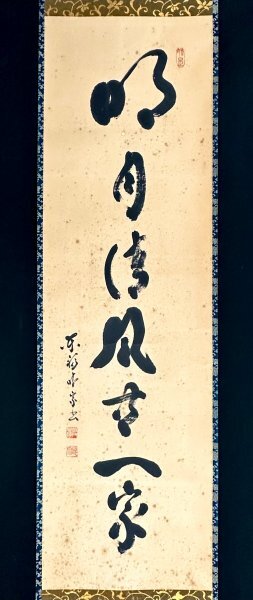 明月清風共一家
東福 書